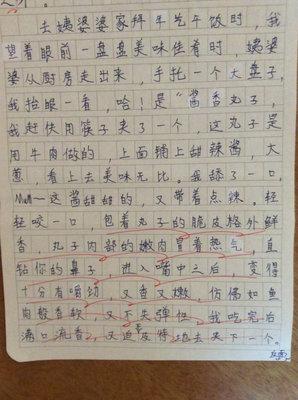 去姨婆婆家拜年先午饭时，我
望着眼前一盘盘美味佳肴时，姨婆
婆从厨房走出来，手托一个大盘子，
我抬眼一看，哈！是“酱香丸子，
我赶伏用筷子夹了一个，这丸子是
用牛肉做的，上面铺上甜辣酱，大
葱，看上去美味无比。我舔了一口，
Mua~这酱甜甜的，又带着点辣。轻
轻咬一口，包着丸子的脆皮格外鲜
香，丸子内部的嫩肉冒着热气，直
钻你的鼻子，进入胃中之后，变得
十分有嚼劲，又香又嫩，仿佛如鱼
肉般香软，又不失弹性。我吃完后
满口流香，又迫皮特地去夹下一个。